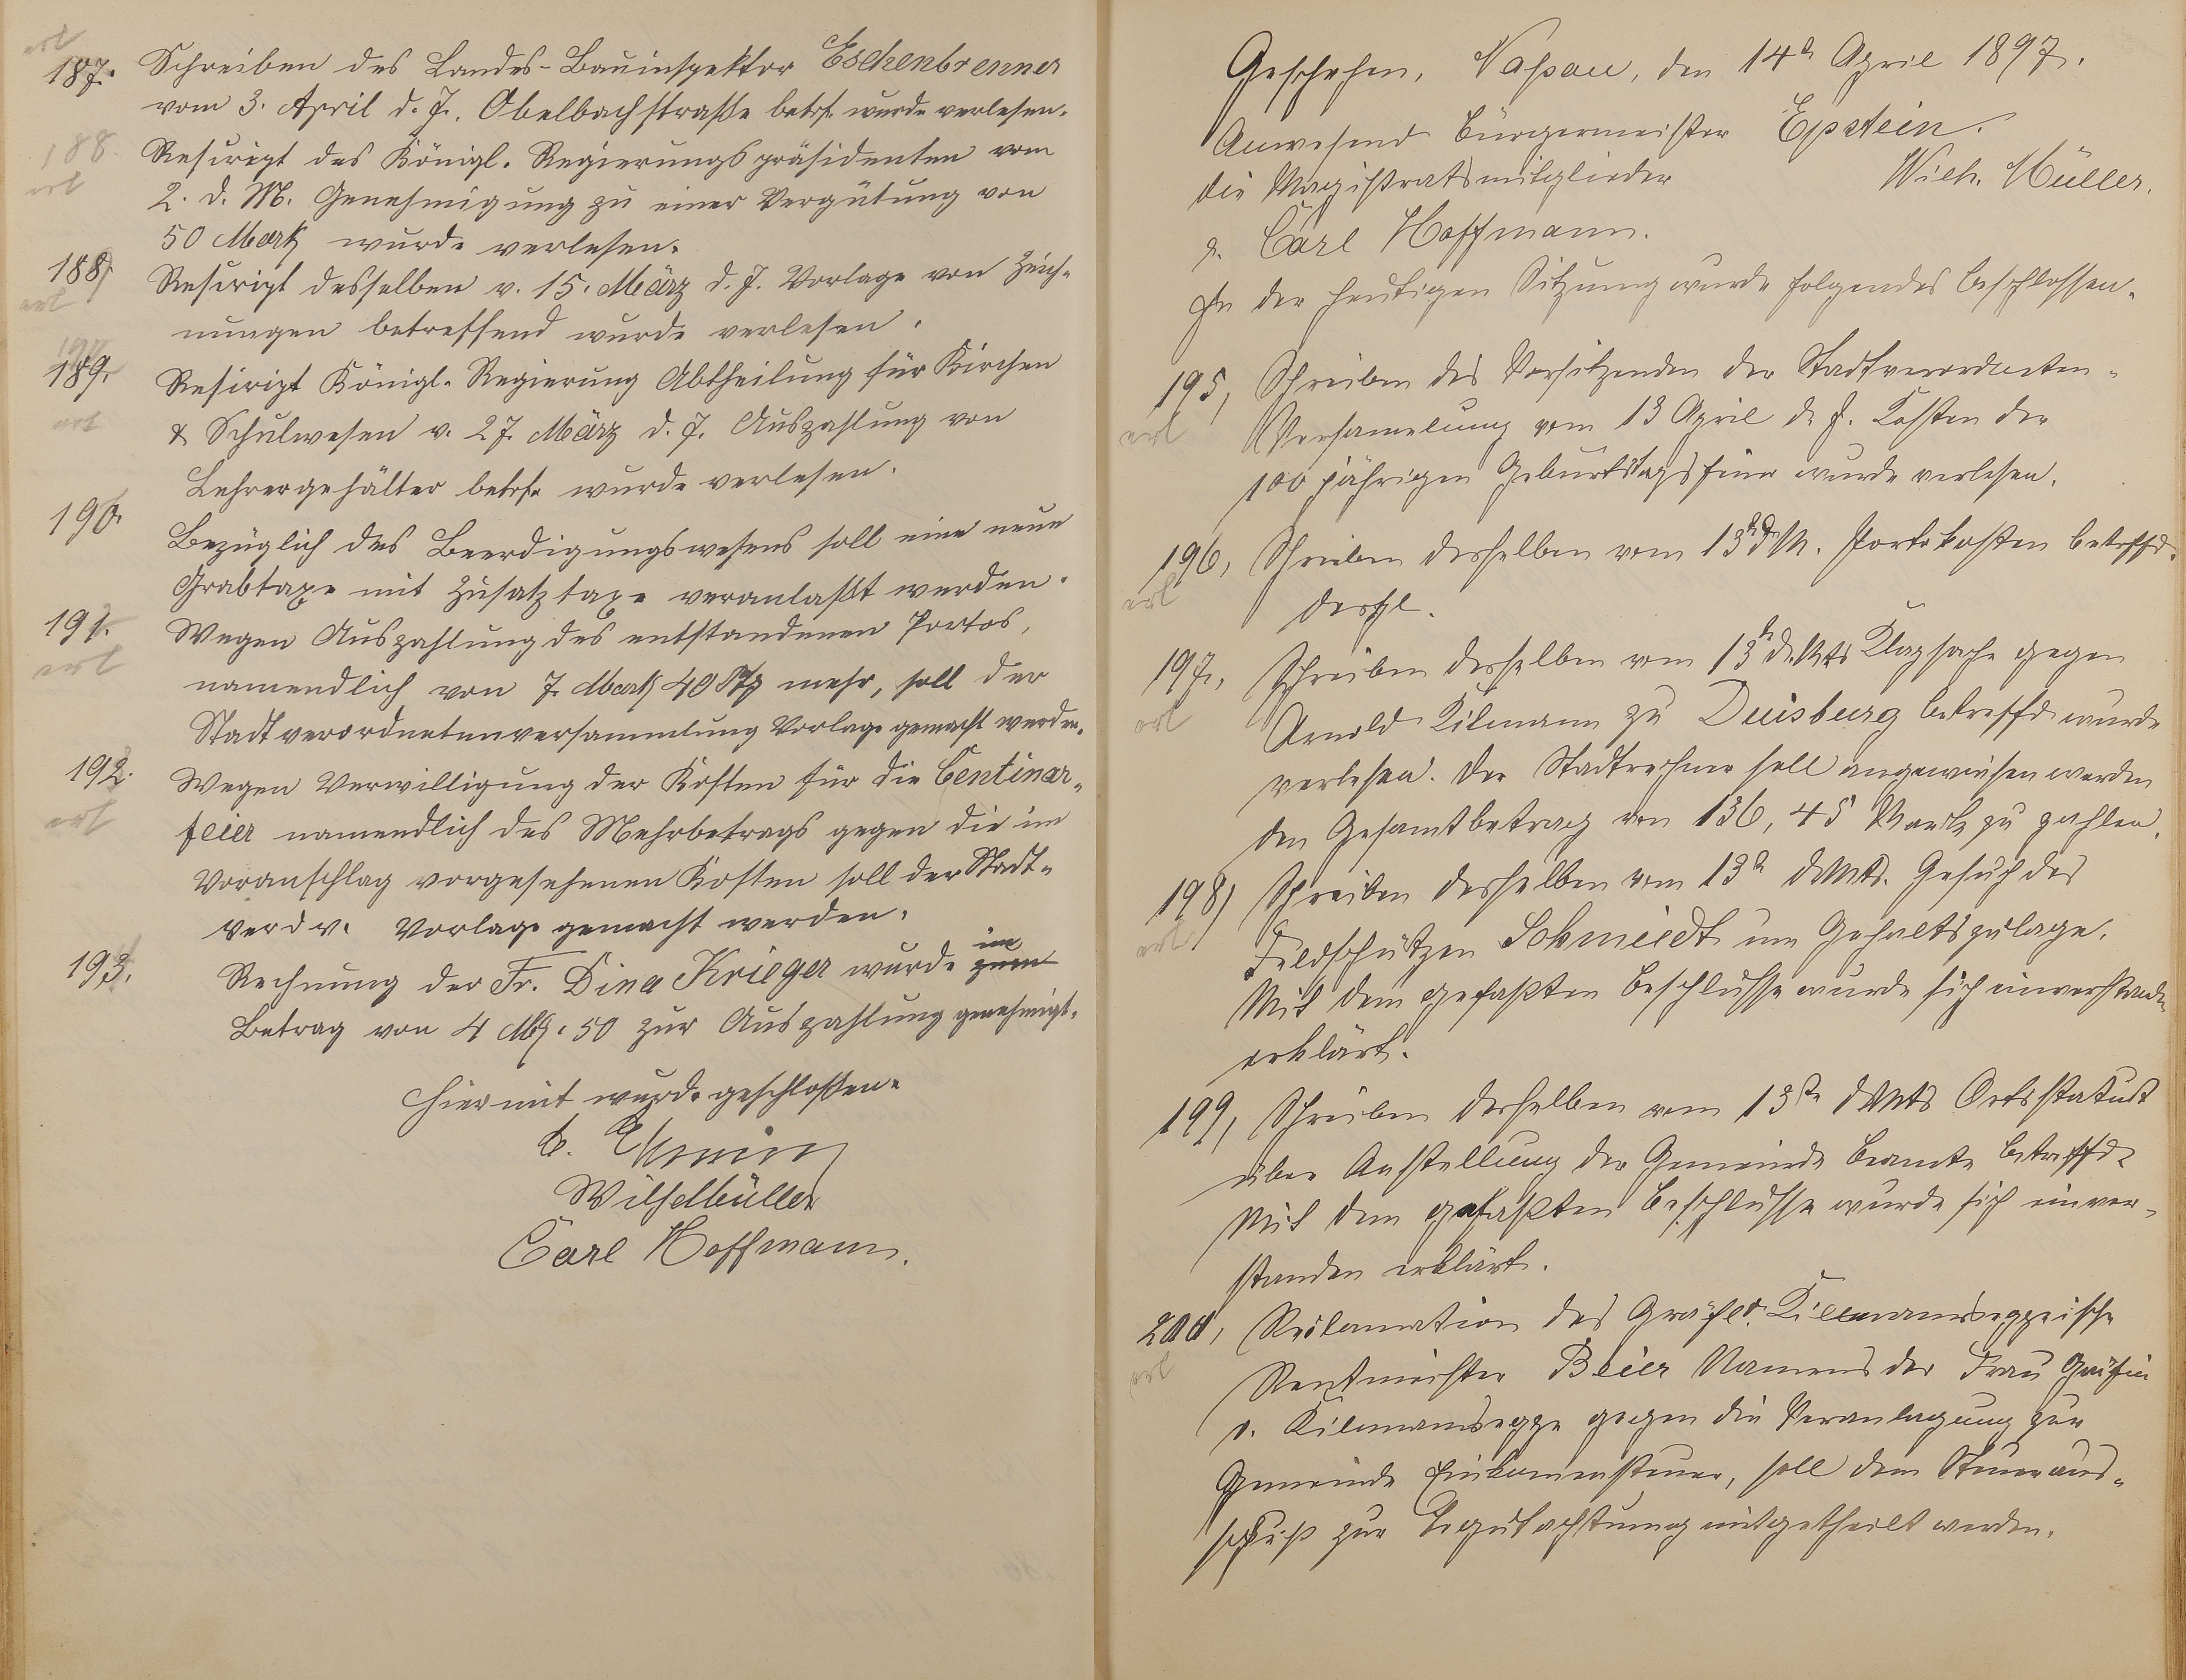 erl
187. Schreiben des Landes-Bauinspektor Eschenbrenner
vom 3. April d. J. Obelbachstraße betrf. wurde verlesen.
188. Rescript des Königl. Regierungspräsidenten vom
erl
2. d. M. Genehmigung zu einer Vergütung von
50 Mark wurde verlesen.
188 Rescript desselben v. 15. März d. J. Vorlage von Zeich-
erl
nungen betreffend wurde verlesen.
189. Rescript Königl. Regierung Abtheilung für Kirchen
erl
& Schulwesen v. 27. März d. J. Auszahlung von
Lehrergehälter betrf. wurde verlesen.
190. Bezüglich des Beerdigungswesens soll eine neue
Grabtaxe mit Zusatztaxe veranlaßt werden.
191. Wegen Auszahlung des entstandenen Portos,
erl
namendlich von 7. Mark 40 Pfg mehr, soll der
Stadtverordnetenversammlung Vorlage gemacht werden.
192. Wegen Verwilligung der Kosten für die Centinar-
erl
feier namendlich des Mehrbetrags gegen die im
Voranschlag vorgesehenen Kosten soll der Stadt-
verdv. Vorlage gemacht werden.
193. Rechnung der Fr. Dina Krieger wurde zum im
Betrag von 4 Mk. 50 zur Auszahlung genehmigt.
Hiermit wurde geschloßen.
Wilh Müller
Carl Hoffmann.
Geschehen, Naßau, den 14t April 1897.
Anwesend Bürgermeister Epstein.
die Magistratsmitglieder Wilh. Müller.
u. Carl Hoffmann.
In der heutigen Sitzung wurde folgendes beschlossen.
195, Schreiben des Vorsitzenden der Stadtverordneten-
erl
Versamelung vom 13 April d. J. Kosten der
100 jährigen Geburtstagsfeier wurde verlesen.
196, Schreiben desselben vom 13t d M. Portokosten betrffd.
erl
desgl.
197, Schreiben desselben vom 13t d. Mts Klagsache gegen
erl
Arnold Kilmann zu Duisburg betreffd wurde
verlesen. Der Stadtrechner soll angewiesen werden
den Gesamtbetrag von 136,45 Mark zu zahlen.
198, Schreiben desselben vom 13t d Mts. Gesuch des
erl
Feldschützen Schmiedt um Gehaltszulage.
Mit dem gefaßten Beschlusse wurde sich einverstanden
erklärt.
199, Schreiben desselben vom 13t d Mts Ortsstatut
über Anstellung der Gemeinde Beamte betreffd.
Mit dem gefaßten Beschlusse wurde sich einver-
standen erklärt.
200, Reclamation des Gräfl. Kilmannseggeische
erl
Rentmeister Beier Namens der Frau Gräfin
v. Kilmannsegge gegen die Veranlagung zur
Gemeinde Einkomensteuer, soll dem Steueraus-
schuß zur Begutachtung mitgetheilt werden.